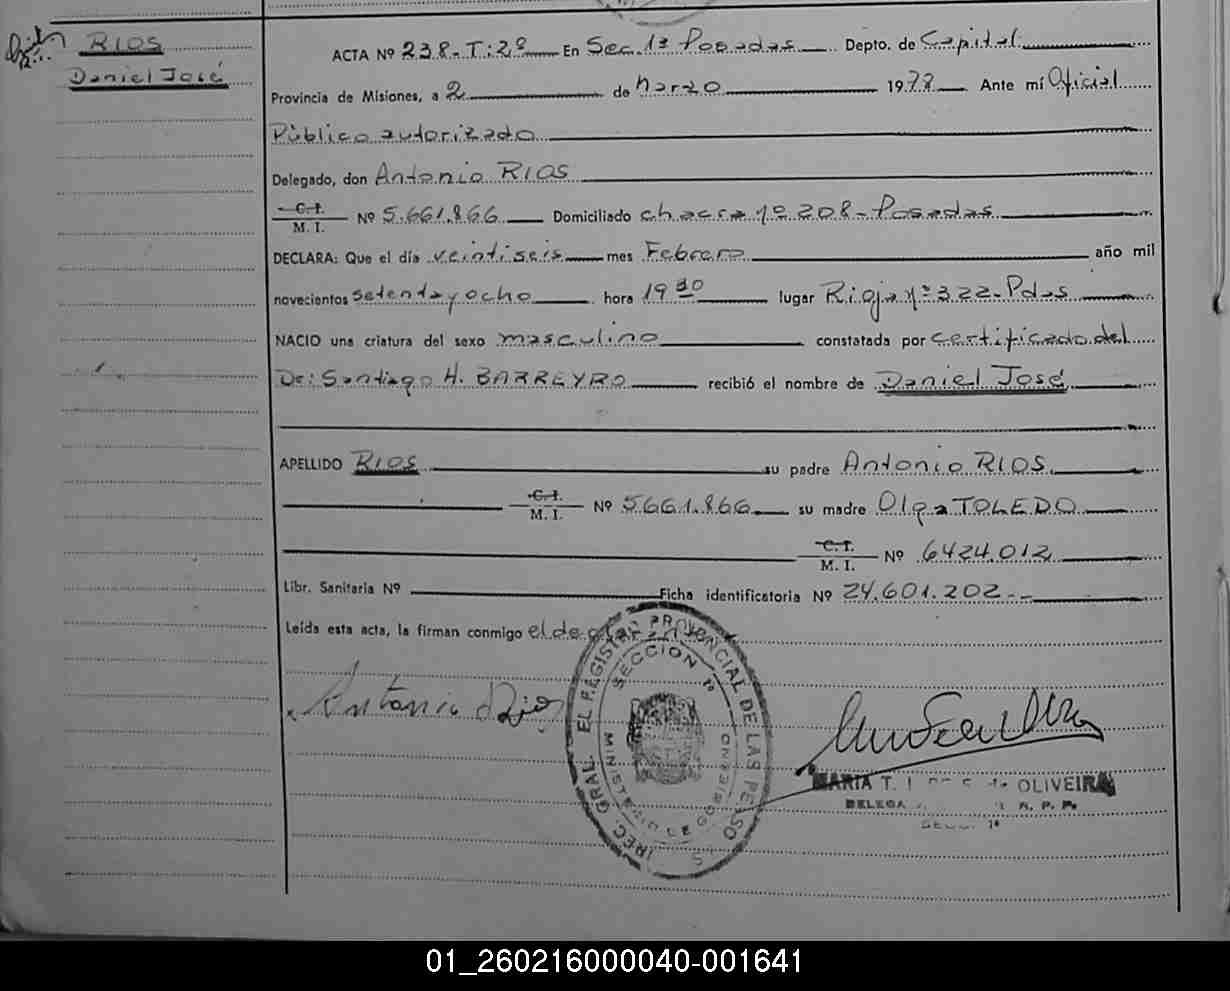 RIOS
Daniel José
ACTA Nº 238-T:2º En Sec. 1ª Posadas Depto. de Capital
Provincia de Misiones, a 2 de Marzo 1978 Ante mí Oficial
Público autorizado
Delegado, don Antonio RIOS
C. I.
M. I. Nº 5.661.866 Domiciliado chacra nº 208-Posadas
DECLARA: Que el día veintiseis mes Febrero año mil
novecientos setenta y ocho hora 19 30 lugar Rioja nº 322-Pdas
NACIO una criatura del sexo masculino constatada por certificado del
Dr: Santiago H. BARREYRO recibió el nombre de Daniel José
APELLIDO RIOS su padre Antonio RIOS
C. I.
M. I. Nº 5661.866 su madre Olga TOLEDO
C. I.
M. I. Nº 6424.012
Libr. Sanitaria Nº Ficha identificatoria Nº 24.601.202
Leída esta acta, la firman conmigo el declarante
Antonio Rios
DIREC. GRAL. EL REGISTRO PROVINCIAL DE LAS PERSONAS
SECCION 1ª
MINISTERIO DE GOBIERNO
MARIA T. OLIVEIRA
R. P. P.
SECC. 1ª
01_260216000040-001641